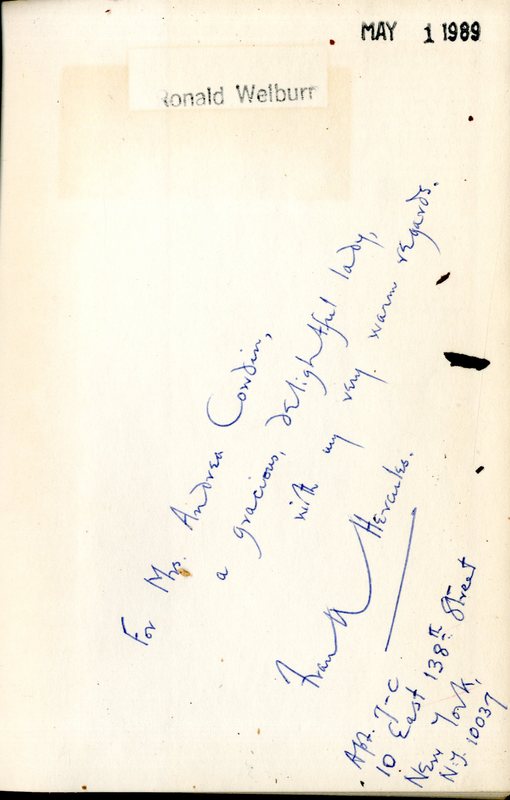 MAY 1 1989
Ronald Welburn
For Mrs. Andrea Cowdin,
a gracious, delightful lady,
with my very warm regards.
Frank Hercules.
Apt. 7-C
10 East 138th Street
New York,
N.Y. 10037